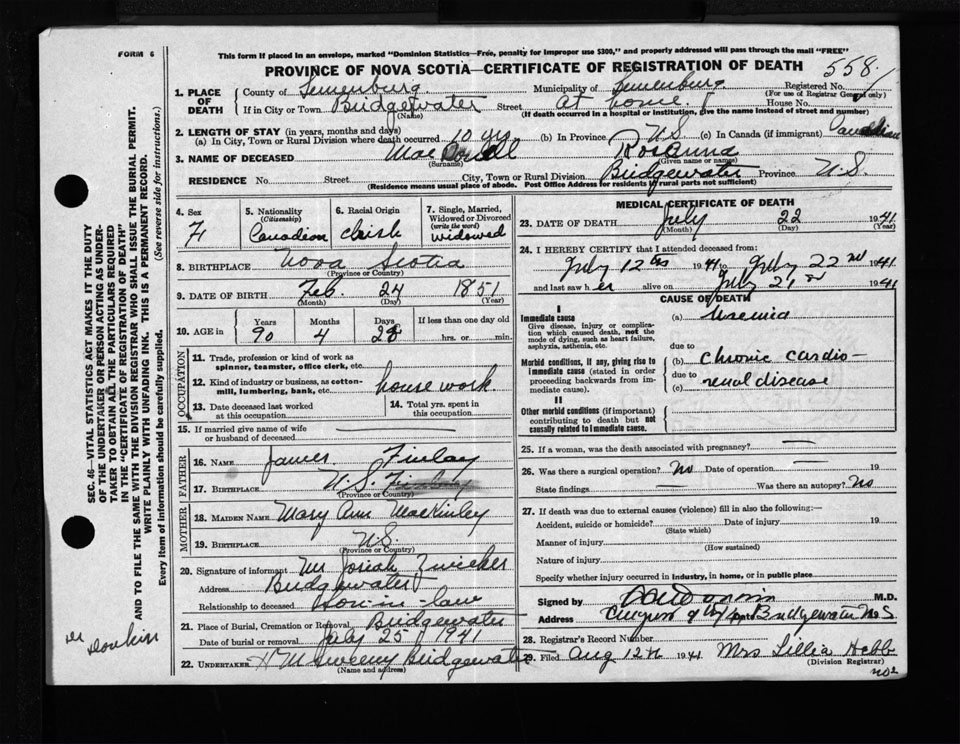 FORM 6
This form if placed in an envelope, marked "Dominion Statistics—Free, penalty for improper use $300," and properly addressed will pass through the mail "FREE"
PROVINCE OF NOVA SCOTIA—CERTIFICATE OF REGISTRATION OF DEATH
558
1. PLACE OF DEATH
County of Lunenburg Municipality of Lunenburg Registered No.
(For use of Registrar General only)
If in City or Town Bridgewater Street At home House No.
(Name) (If death occurred in a hospital or institution, give the name instead of street and number)
2. LENGTH OF STAY (in years, months and days)
(a) In City, Town or Rural Division where death occurred 10 yrs. (b) In Province N.S (c) In Canada (if immigrant) Canadian
3. NAME OF DECEASED Mac RosBund
(Surname) (Given name or names)
RESIDENCE No. Street City, Town or Rural Division Bridgewater Province N.S.
(Residence means usual place of abode. Post Office Address for residents in rural parts not sufficient)
4. Sex F
5. Nationality (Citizenship) Canadian
6. Racial Origin Irish
7. Single, Married, Widowed or Divorced (write the word) widowed
8. BIRTHPLACE Nova Scotia
(Province or Country)
9. DATE OF BIRTH Feb. 24 1851
(Month) (Day) (Year)
10. AGE in Years Months Days If less than one day old
90 4 28 hrs. or min.
OCCUPATION
11. Trade, profession or kind of work as spinner, teamster, office clerk, etc.
12. Kind of industry or business, as cotton-mill, lumbering, bank, etc. house work.
13. Date deceased last worked at this occupation
14. Total yrs. spent in this occupation
15. If married give name of wife or husband of deceased
FATHER
16. NAME James Finlay
17. BIRTHPLACE N.S.
(Province or Country)
MOTHER
18. MAIDEN NAME Mary Ann MacKinley
19. BIRTHPLACE N.S.
(Province or Country)
20. Signature of informant Mr Josiah Zwicker
Address Bridgewater
Relationship to deceased Son-in-law
21. Place of Burial, Cremation or Removal Bridgewater
Date of burial or removal July 25 1941
22. UNDERTAKER H M Sweeny Bridgewater
(Name and address)
MEDICAL CERTIFICATE OF DEATH
23. DATE OF DEATH July 22 1941
(Month) (Day) (Year)
24. I HEREBY CERTIFY that I attended deceased from:
July 12th 1941 to July 22nd 1941
and last saw her alive on July 21 1941
CAUSE OF DEATH
I
Immediate cause
Give disease, injury or complication which caused death, not the mode of dying, such as heart failure, asphyxia, asthenia, etc.
(a) Uraemia
due to
Morbid conditions, if any, giving rise to immediate cause (stated in order proceeding backwards from immediate cause).
(b) Chronic Cardio-
due to
(c) renal disease
II
Other morbid conditions (if important) contributing to death but not causally related to immediate cause.
25. If a woman, was the death associated with pregnancy? —
26. Was there a surgical operation? No Date of operation — 19
State findings — Was there an autopsy? No
27. If death was due to external causes (violence) fill in also the following:—
Accident, suicide or homicide? Date of injury 19
(State which)
Manner of injury
(How sustained)
Nature of injury
Specify whether injury occurred in industry, in home, or in public place
Signed by M.D.
Address Bridgewater N.S
28. Registrar's Record Number
29. Filed Aug 12th 1941 Mrs Lillia Hebb
(Division Registrar)
no 2
SEC. 46—VITAL STATISTICS ACT MAKES IT THE DUTY
OF THE UNDERTAKER OR PERSON ACTING AS UNDER-
TAKER TO OBTAIN ALL THE PARTICULARS REQUIRED
IN THE "CERTIFICATE OF REGISTRATION OF DEATH"
AND TO FILE THE SAME WITH THE DIVISION REGISTRAR WHO SHALL ISSUE THE BURIAL PERMIT.
WRITE PLAINLY WITH UNFADING INK. THIS IS A PERMANENT RECORD.
Every item of information should be carefully supplied. (See reverse side for instructions.)